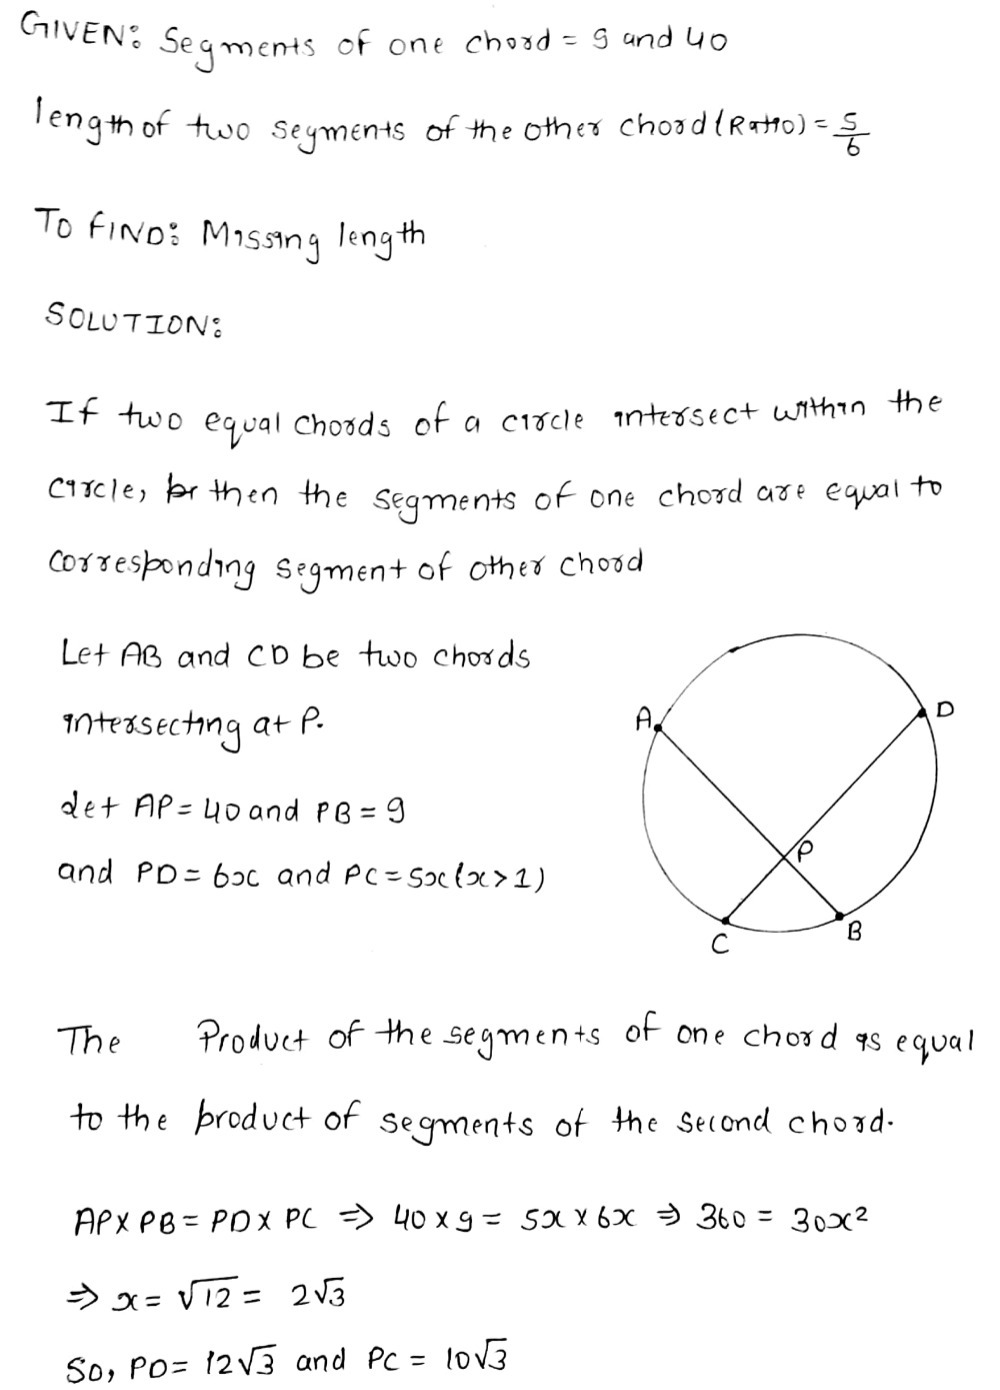 GIVEN: Segments of one chord = 9 and 40
length of two segments of the other chord (Ratio) = 5/6
TO FIND: Missing length
SOLUTION:
If two equal chords of a circle intersect within the
circle, then the segments of one chord are equal to
corresponding segment of other chord
Let AB and CD be two chords
intersecting at P.
Let AP = 40 and PB = 9
and PD = 6x and PC = 5x (x > 1)
A
D
P
C
B
The Product of the segments of one chord is equal
to the product of segments of the second chord.
AP X PB = PD X PC ⇒ 40 x 9 = 5x x 6x ⇒ 360 = 30x²
⇒ x = √12 = 2√3
So, PD = 12√3 and PC = 10√3